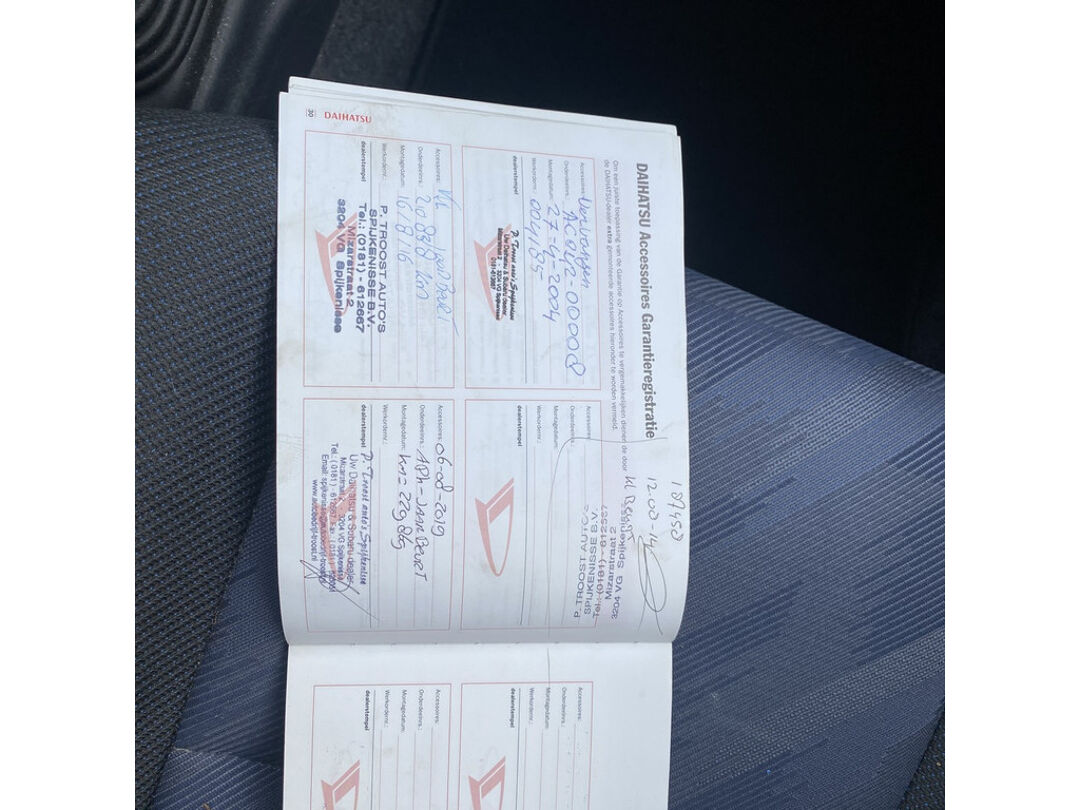 DAIHATSU Accessoires Garantieregistratie
Om een juiste toepassing van de Garantie op Accessoires te vergemakkelijken dienen de door
de DAIHATSU-dealer extra gemonteerde accessoires hieronder te worden vermeld.
Accessoires:
Onderdeelnrs.:
Montagedatum: 27-4-2004
Werkordernr.: 004185
dealerstempel
P. Troost auto's Spijkenisse
Uw Daihatsu & Subaru dealer
Mizarstraat 2 - 3204 VG Spijkenisse
0181-612667
189450
KL Beurt
P. TROOST AUTO'S
SPIJKENISSE B.V.
Tel.: (0181) - 612667
Mizarstraat 2
3204 VG Spijkenisse
Accessoires:
Onderdeelnrs.:
Montagedatum:
Werkordernr.:
dealerstempel
Accessoires: KL Beurt
Onderdeelnrs.: 208838 km
Montagedatum: 16/8/16
Werkordernr.:
dealerstempel
P. TROOST AUTO'S
SPIJKENISSE B.V.
Tel.: (0181) - 612667
Mizarstraat 2
3204 VG Spijkenisse
Accessoires: 06-08-2019
Onderdeelnrs.: APK-JAAR BEURT
Montagedatum:
Werkordernr.:
dealerstempel
P. Troost auto's Spijkenisse
Uw Daihatsu & Subaru dealer
Mizarstraat 2 3204 VG Spijkenisse
Tel.: (0181) - 612667
www.autobedrijf-troost.nl
30 DAIHATSU
Accessoires:
Onderdeelnrs.:
Montagedatum:
Werkordernr.:
dealerstempel
Accessoires:
Onderdeelnrs.:
Montagedatum:
Werkordernr.:
dealerstempel